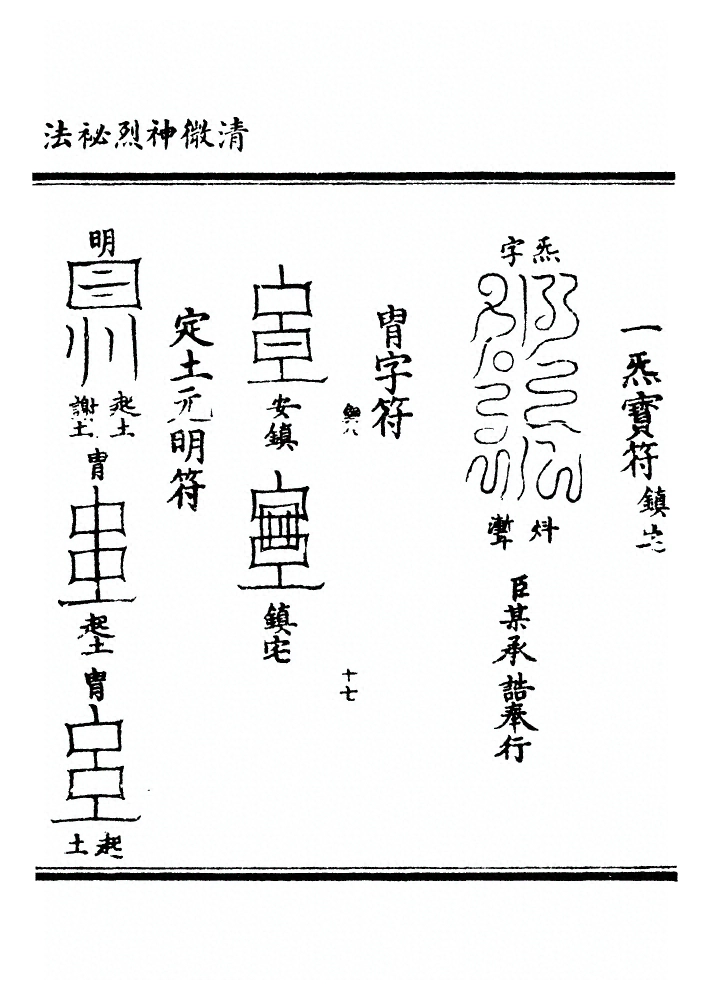 清微神烈祕法
一炁寶符 鎮宅
炁字
㪷
臣某承誥奉行
冑字符
安鎮
鎮宅
十七
定土元明符
明
起土
謝土
冑
起土
冑
起土